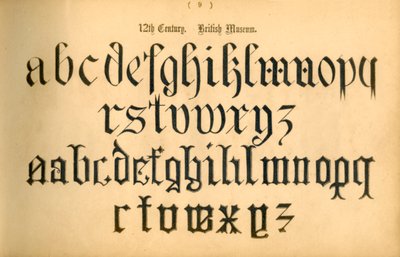 ( 9 )
12th Century. British Museum.
abcdefghiklmnopq
rstvwxyz
aabcdefghiklmnopq
rtuvwxyz